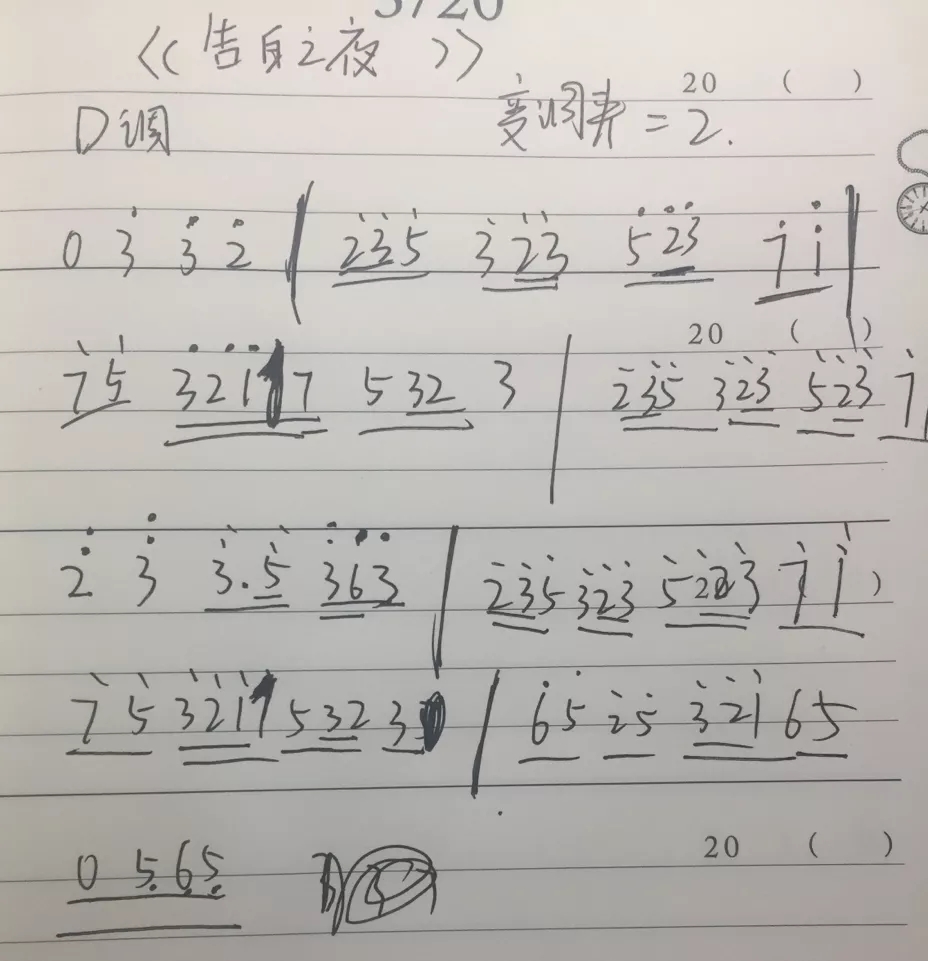 5720
《告白之夜》
20 ( )
D调 变调夹=2.
0 3̇ 3̇ 2̇ | 2̇3̇5̇ 3̇2̇3̇ 5̇2̇3̇ 7̇1̇ |
20 ( )
7̇5̇ 3̇2̇1̇7 532 3 | 2̇3̇5̇ 3̇2̇3̇ 5̇2̇3̇ 7̇
2̇ 3̇ 3̇.5̇ 3̇6̇3̇ | 2̇3̇5̇ 3̇2̇3̇ 5̇2̇3̇ 7̇1̇ )
7̇5̇ 3̇2̇1̇ 532 3 | 6̇5̇ 2̇5̇ 3̇2̇1̇ 65
0 5̣6̣5̣
20 ( )